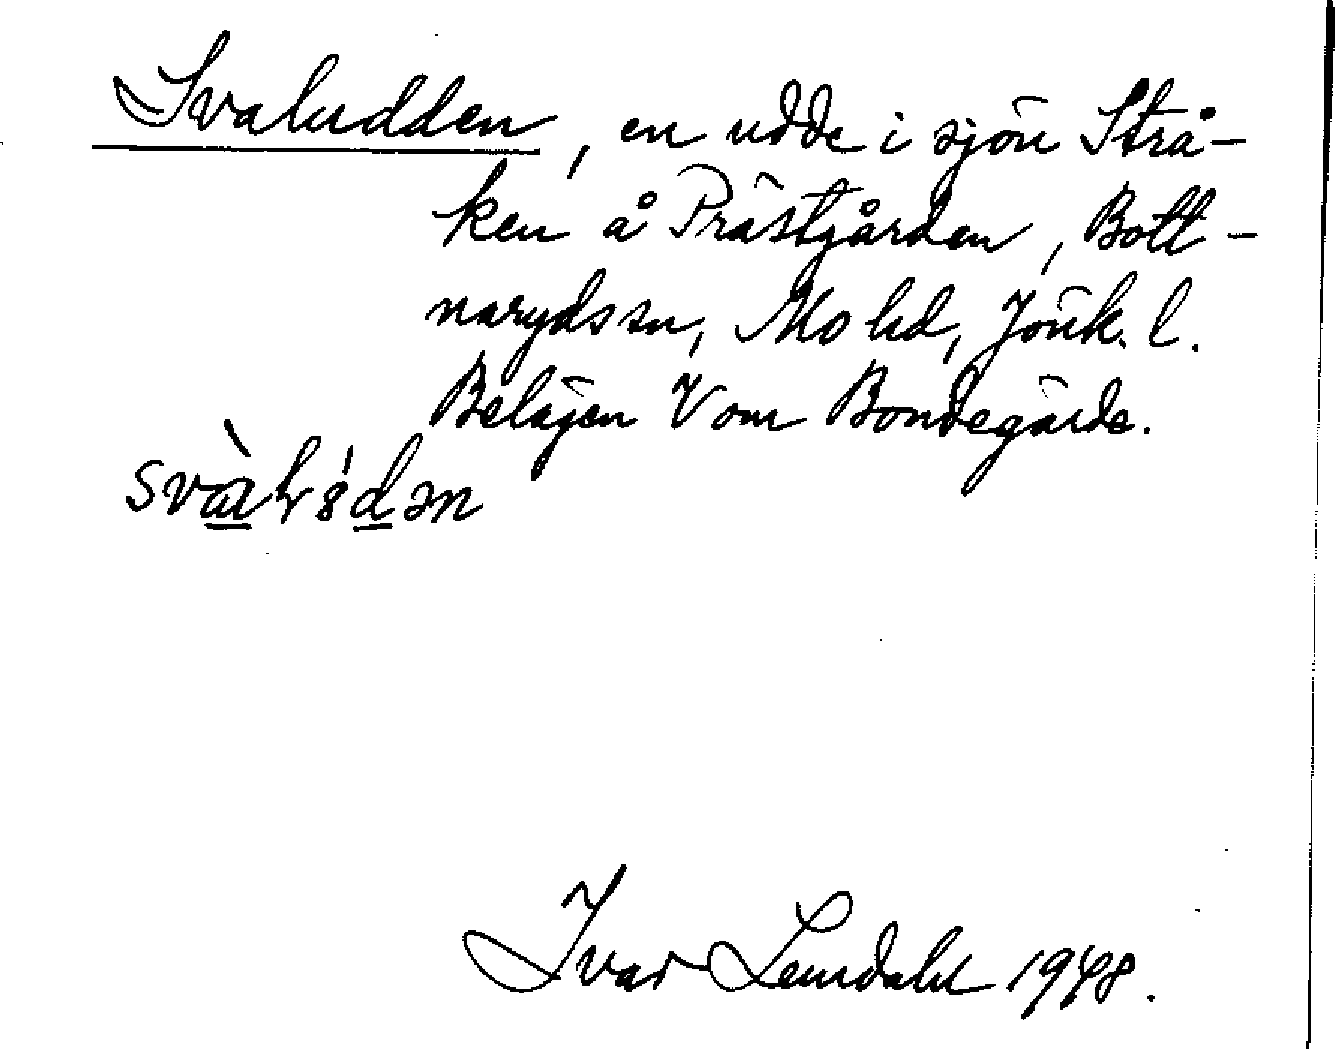 Svaludden, en udde i sjön Strå-
ken å Prästgården, Bott-
naryds sn, Mo hd, Jönk. l.
Belägen V om Bondegärde.
Ivar Lundahl 1948.